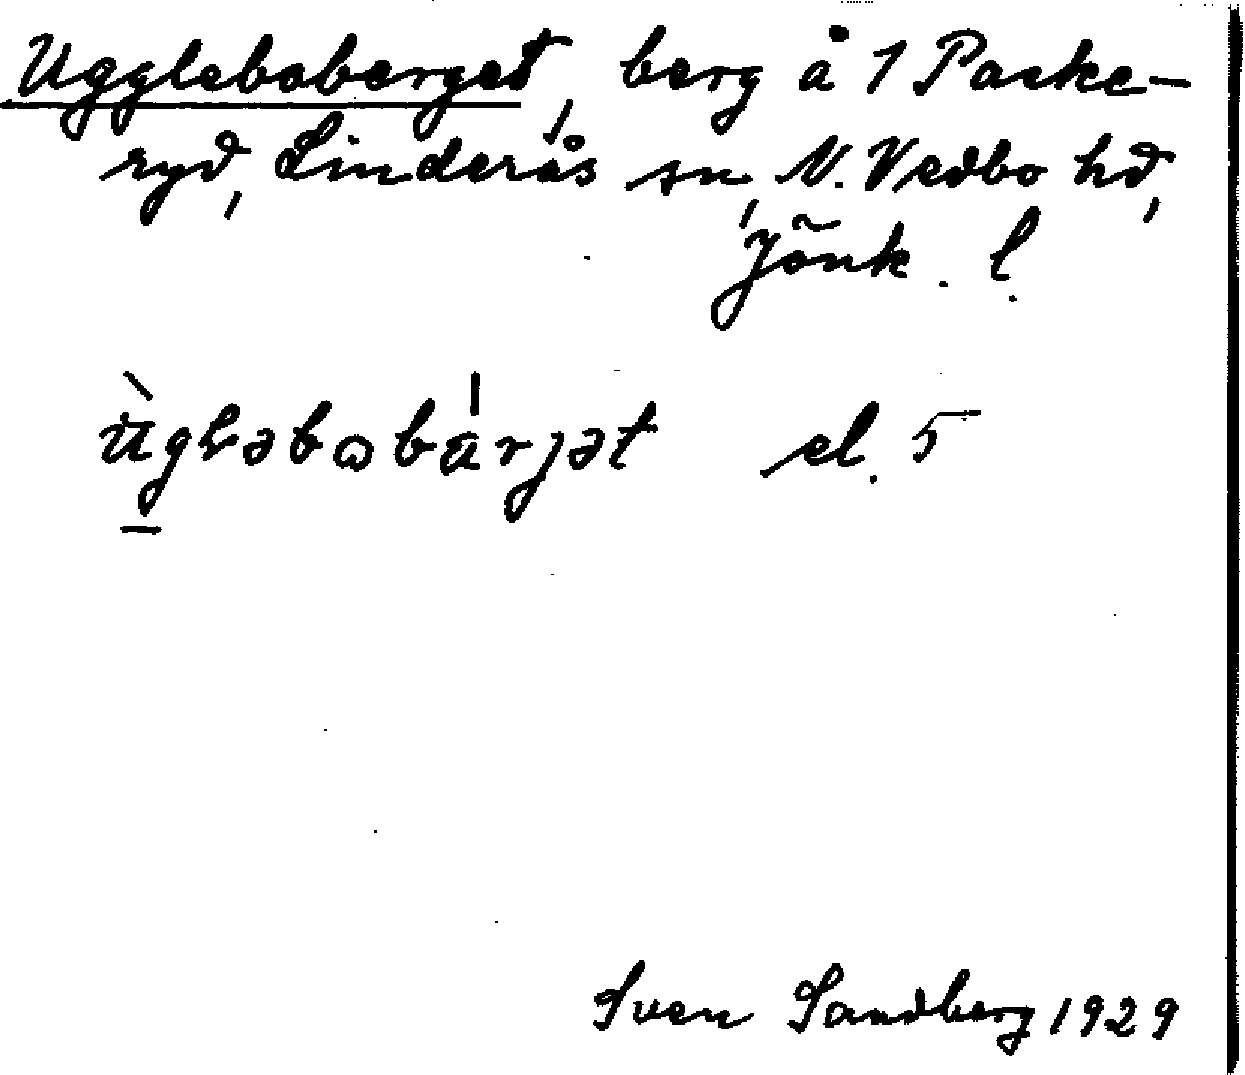 Uggleboberget, berg å 1 Paske-
ryd, Linderås sn, N. Vedbo hd,
Jönk. l.
ùgləboba̍rjət el. 5
Sven Sandberg 1929